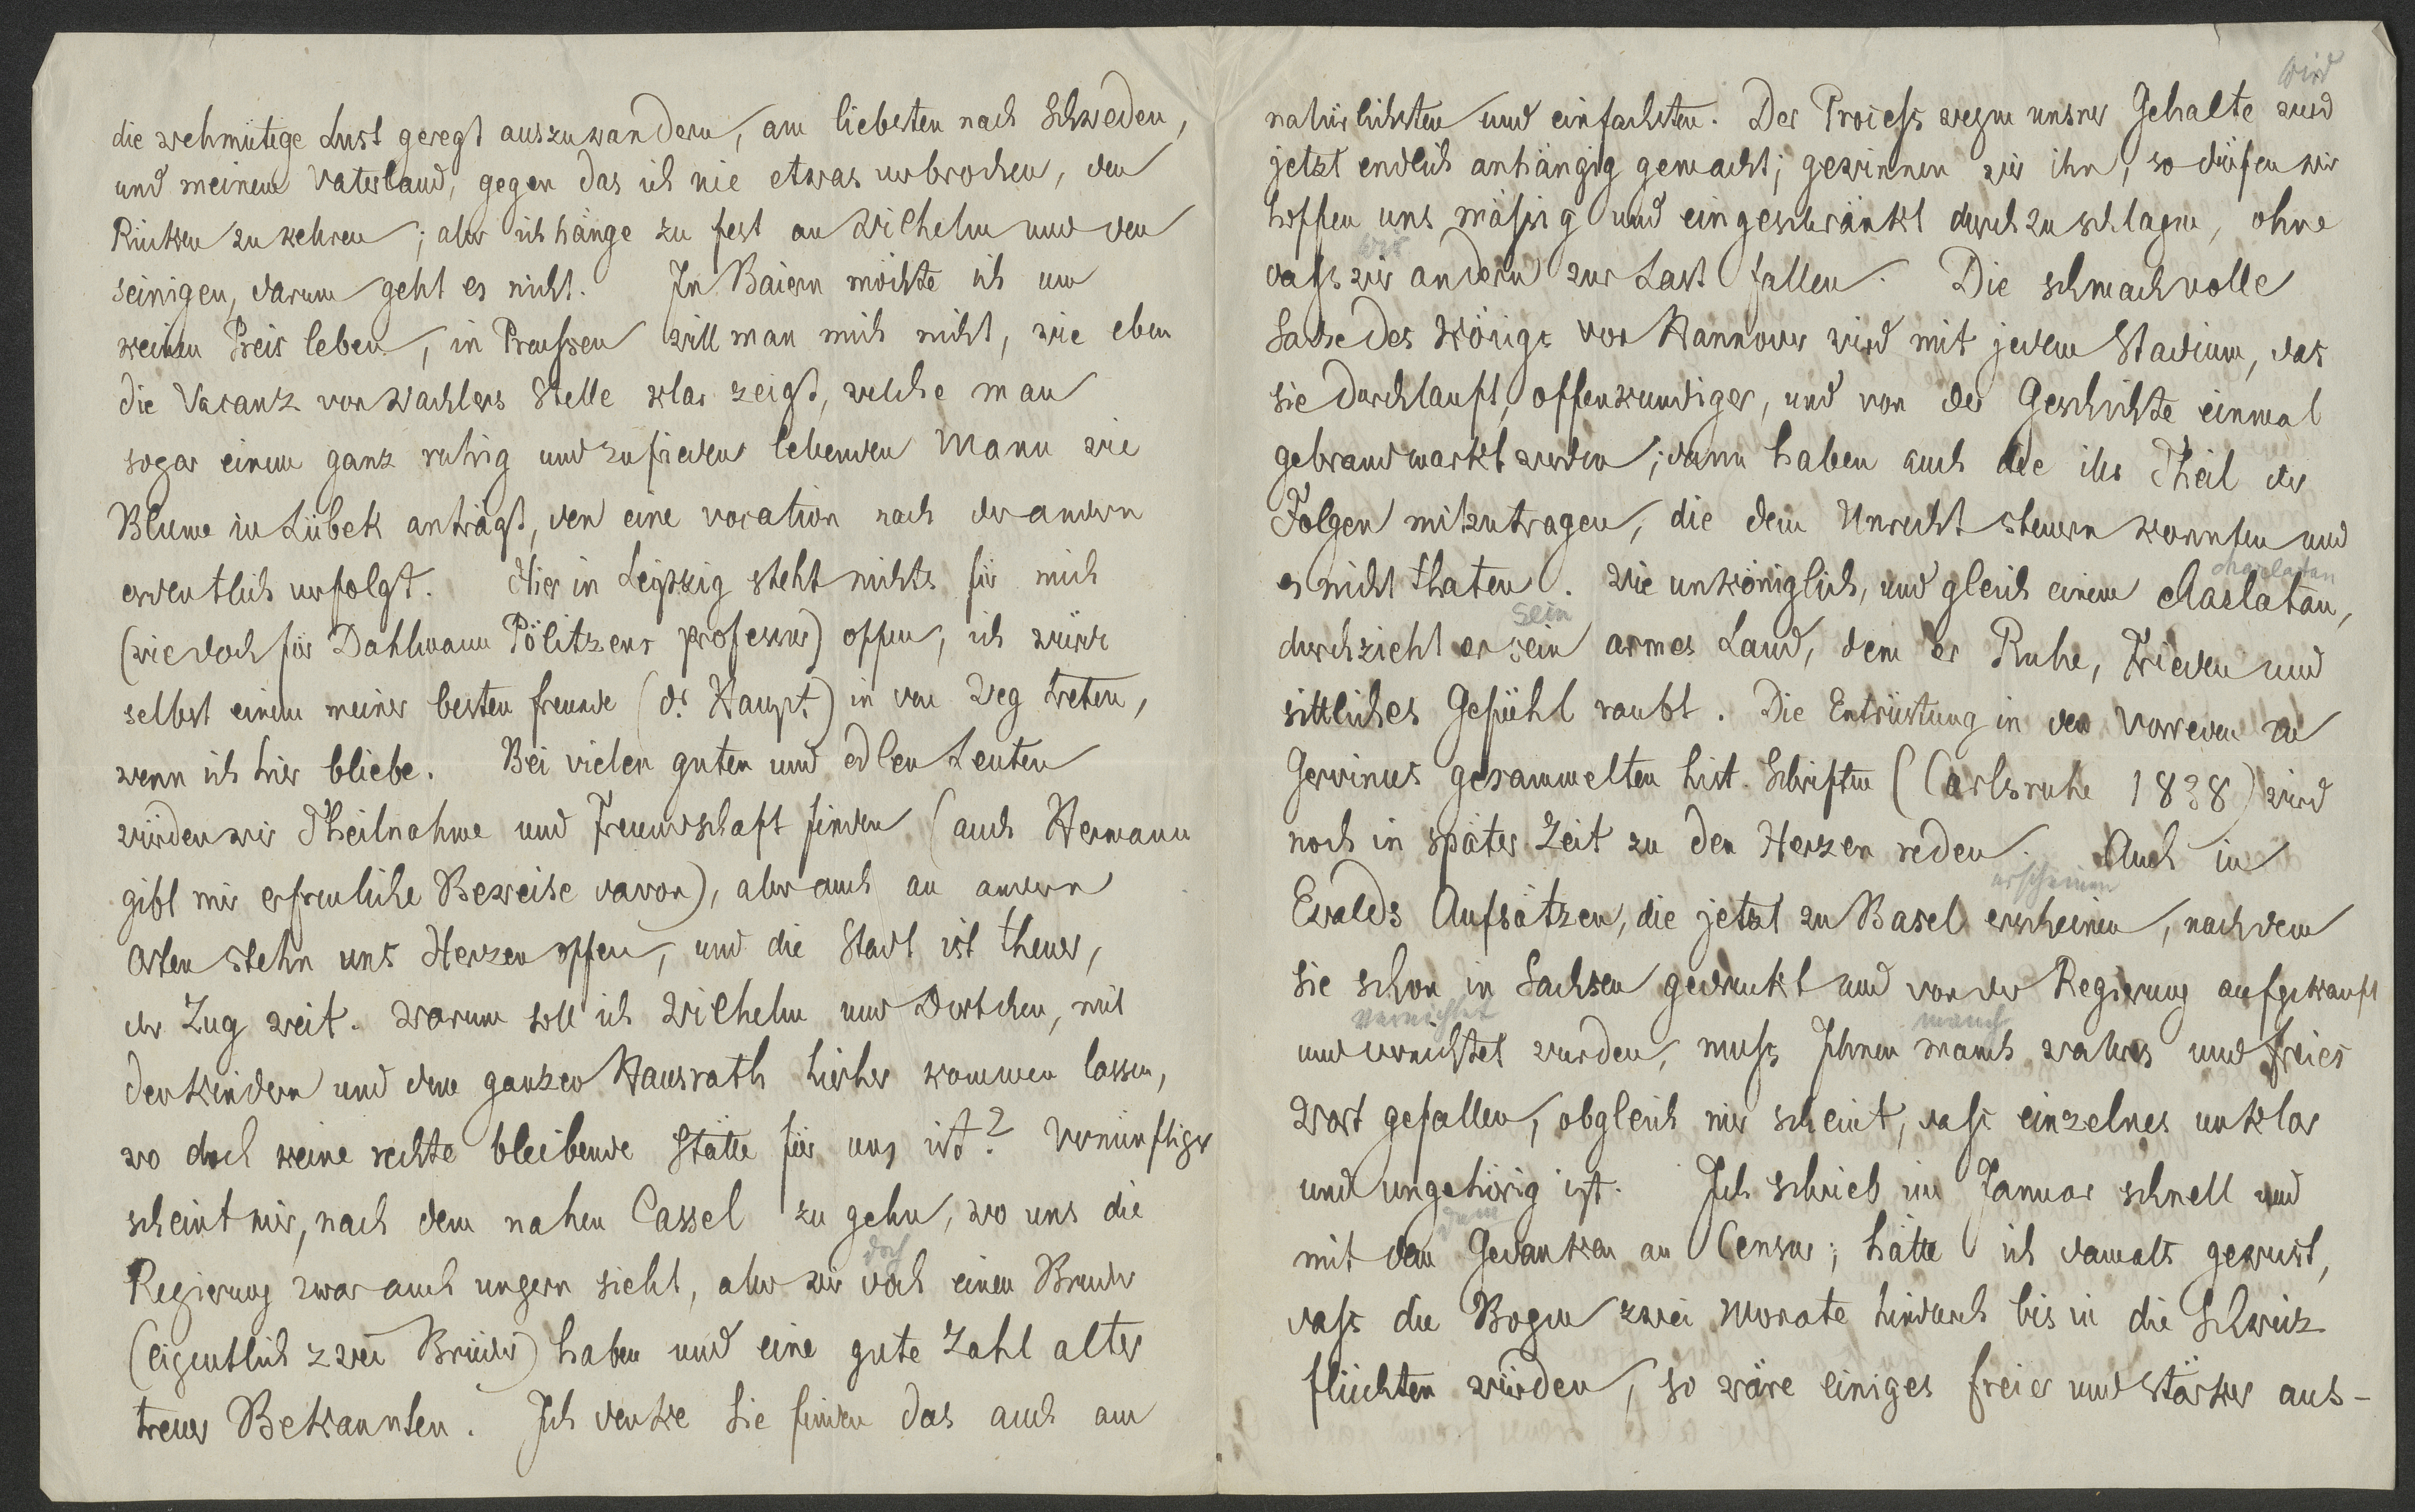 die wehmütige Lust geregt auszuwandern, am liebsten nach Schweden,
und meinem Vaterland, gegen das ich nie etwas verbrochen, den
Rücken zu kehren; aber ich hänge zu fest an Wilhelm und den
seinigen, darum geht es nicht. In Baiern möchte ich um
keinen Preis leben, in Preußen will man mich nicht, wie eben
die Vacanz von Wachlers Stelle klar zeigt, welche man
sogar einem ganz ruhig und zufrieden lebenden Mann wie
Blume in Lübek anträgt, den eine vocation nach der andern
ordentlich verfolgt. Hier in Leipzig steht nichts für mich
(wie doch für Dahlmann Pölitzens professur) offen, ich würde
selbst einem meiner besten freunde (dr Haupt) in den Weg treten,
wenn ich hier bliebe. Bei vielen guten und edlen Leuten
würden wir Theilnahme und Freundschaft finden (auch Hermann
gibt mir erfreuliche Beweise davon), aber auch an andern
Orten stehn uns Herzen offen, und die Stadt ist theuer,
der Zug weit. Warum soll ich Wilhelm und Dortchen, mit
den Kindern und dem ganzen Hausrath hierher kommen lassen,
wo doch keine rechte bleibende Stätte für uns ist? Vernünftiger
scheint mir, nach dem nahen Cassel zu gehn, wo uns die
doch
Regierung zwar auch ungern sieht, aber wir doch einen Bruder
(eigentlich zwei Brüder) haben und eine gute Zahl alter
treuer Bekannten. Ich denke Sie finden das auch am
wird
natürlichsten und einfachsten. Der Process wegen unsrer Gehalte wird
jetzt endlich anhängig gemacht; gewinnen wir ihn, so dürfen wir
hoffen uns mäßig und eingeschränkt durchzuschlagen, ohne
wir
daß wir andern zur Last fallen. Die schmachvolle
Sache des Königs von Hannover wird mit jedem Stadium, das
sie durchlauft, offenkundiger, und von der Geschichte einmal
gebrandmarkt werden; dann haben auch die ihr Theil der
Folgen mitzutragen, die dem Unrecht steuern konnten und
charlatan
es nicht thaten. Wie unköniglich, und gleich einem charlatan,
sein
durchzieht er sein armes Land, dem er Ruhe, Frieden und
sittliches Gefühl raubt. Die Entrüstung in den Vorreden zu
Gervinus gesammelten hist. Schriften (Carlsruhe 1838) wird
noch in später Zeit zu den Herzen reden. Auch in
erscheinen
Ewalds Aufsätzen, die jetzt zu Basel erscheinen, nachdem
sie schon in Sachsen gedruckt und von der Regierung aufgekauft
vernichtet manch
und vernichtet wurden, muß Ihnen manch wahres und freies
Wort gefallen, obgleich mir scheint, daß einzelnes unklar
und ungehörig ist. Ich schrieb im Januar schnell und
dem
mit dem Gedanken an Censur; hätte ich damals gewust,
daß die Bogen zwei Monate hindurch bis in die Schweiz
flüchten würden, so wäre einiges freier und stärker aus-